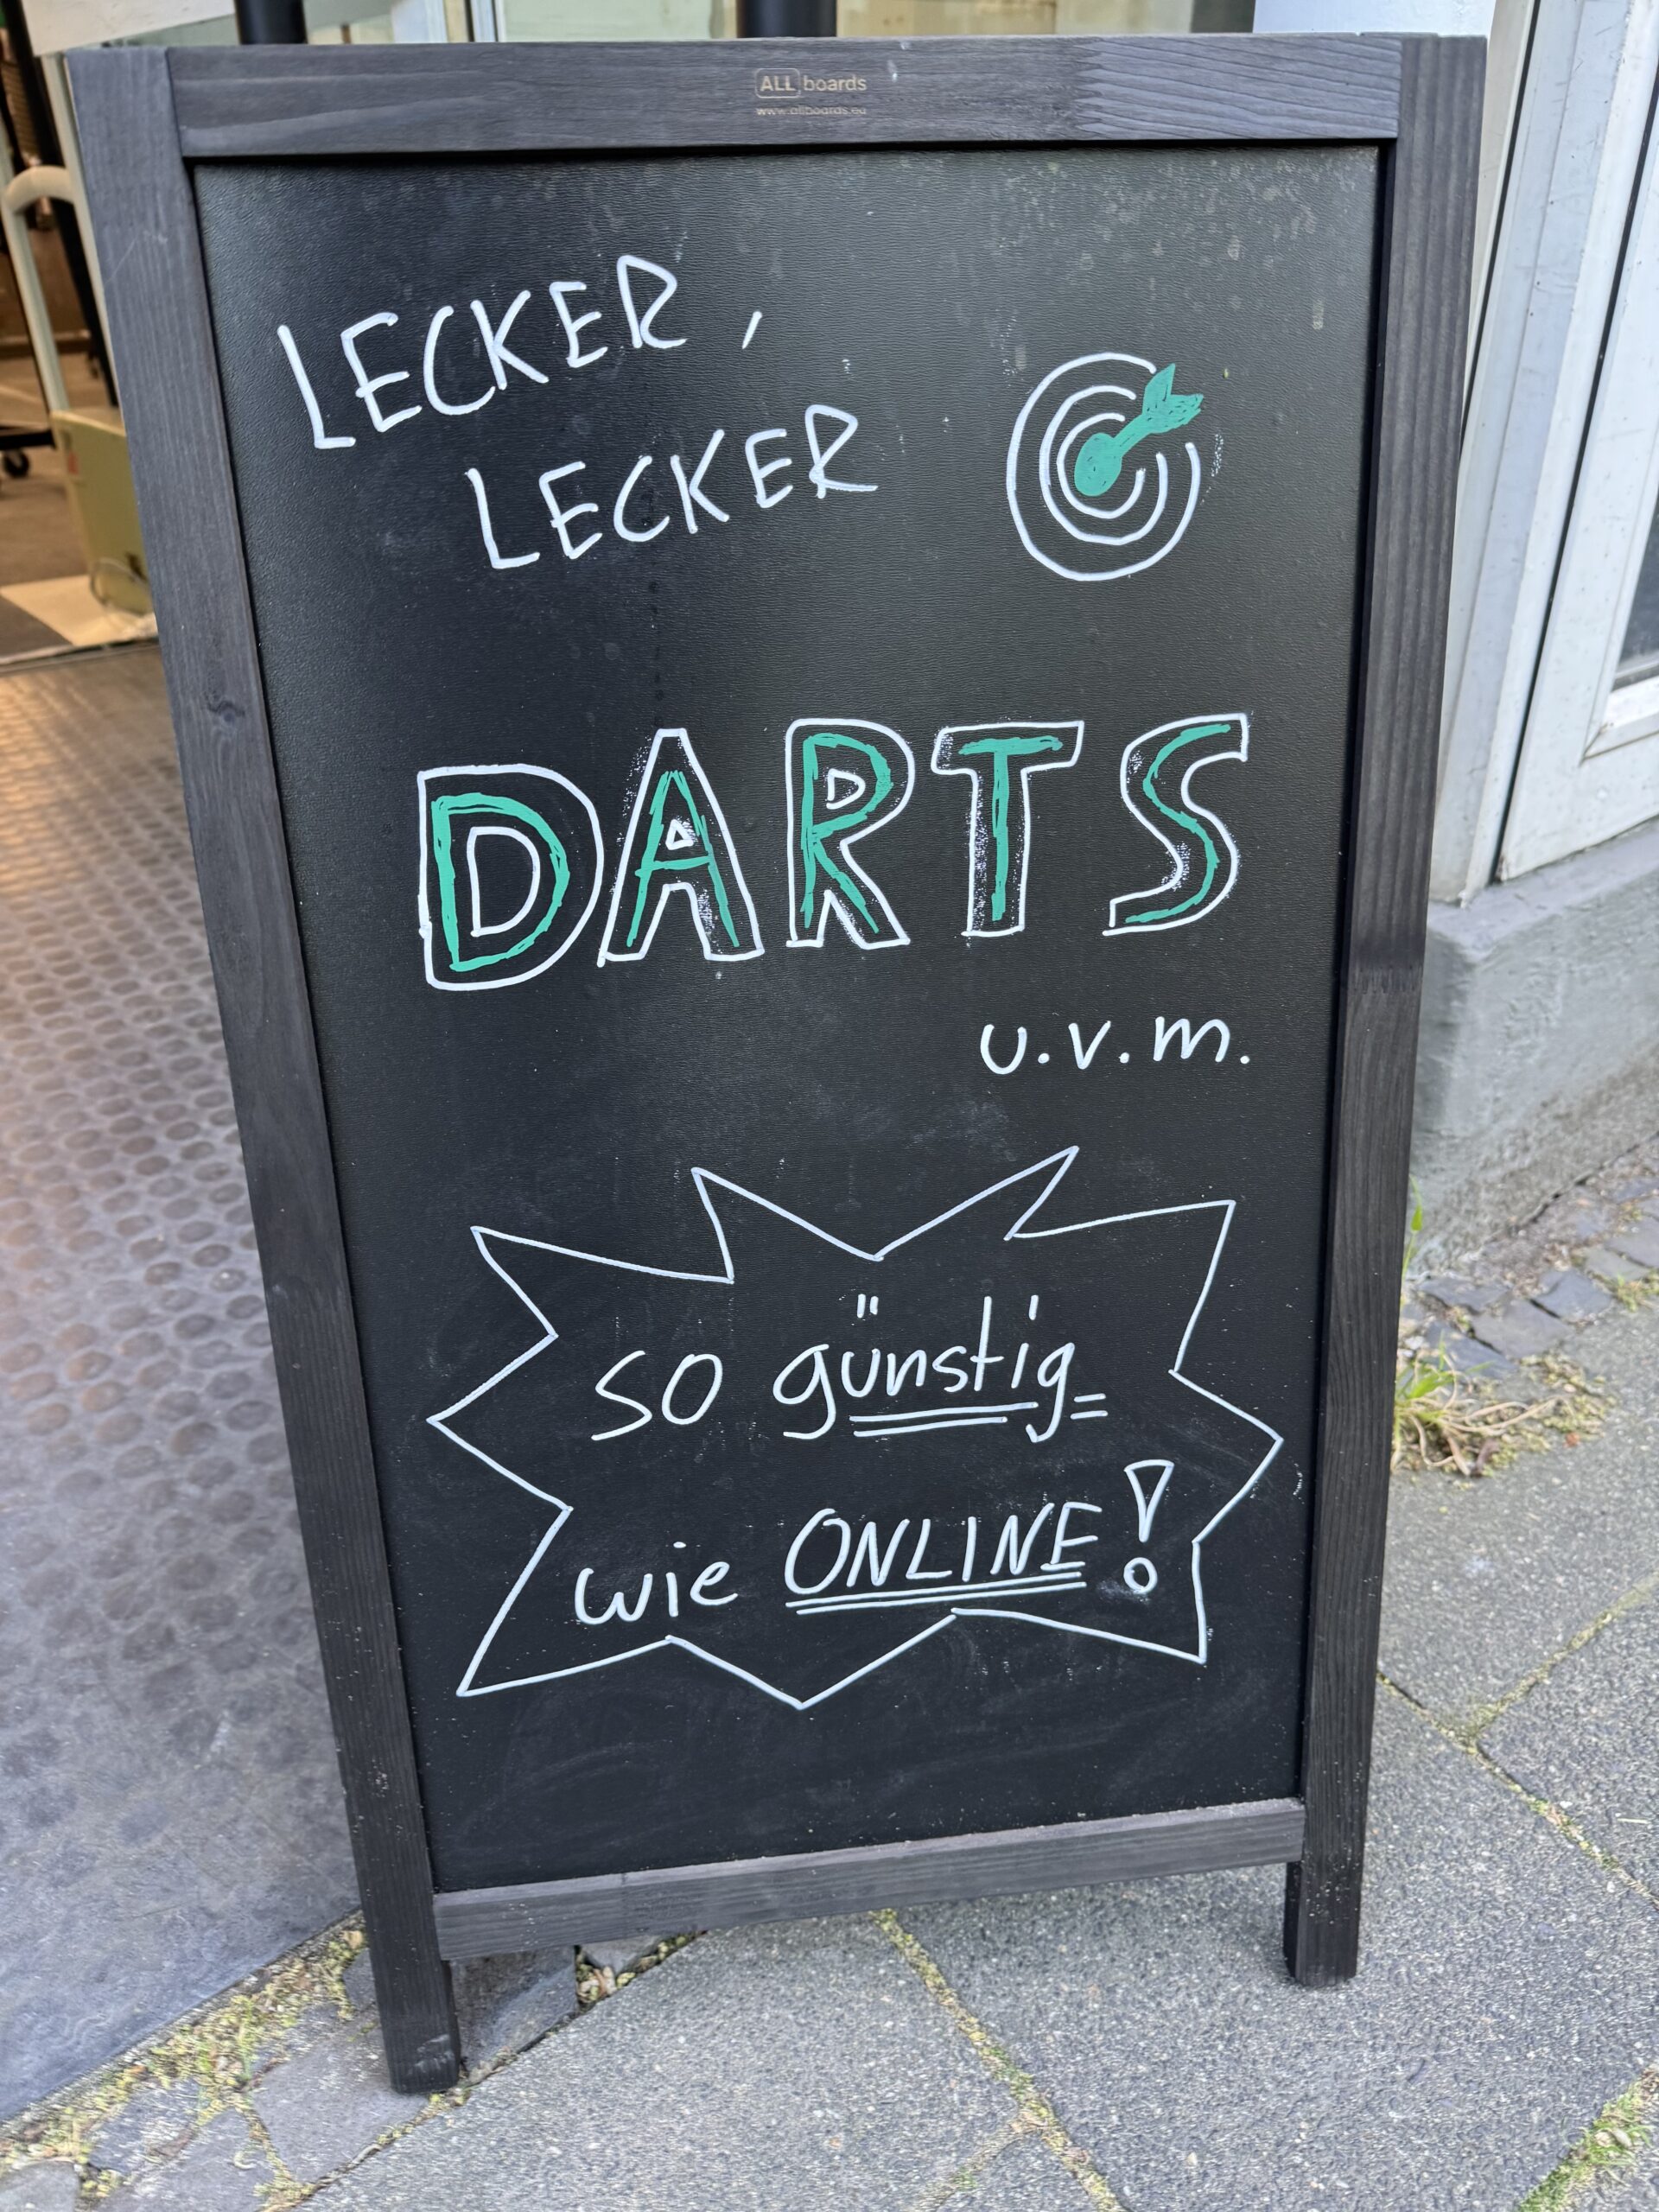 ALL boards
www.allboards.eu
LECKER,
LECKER
DARTS
u.v.m.
so günstig
wie ONLINE!